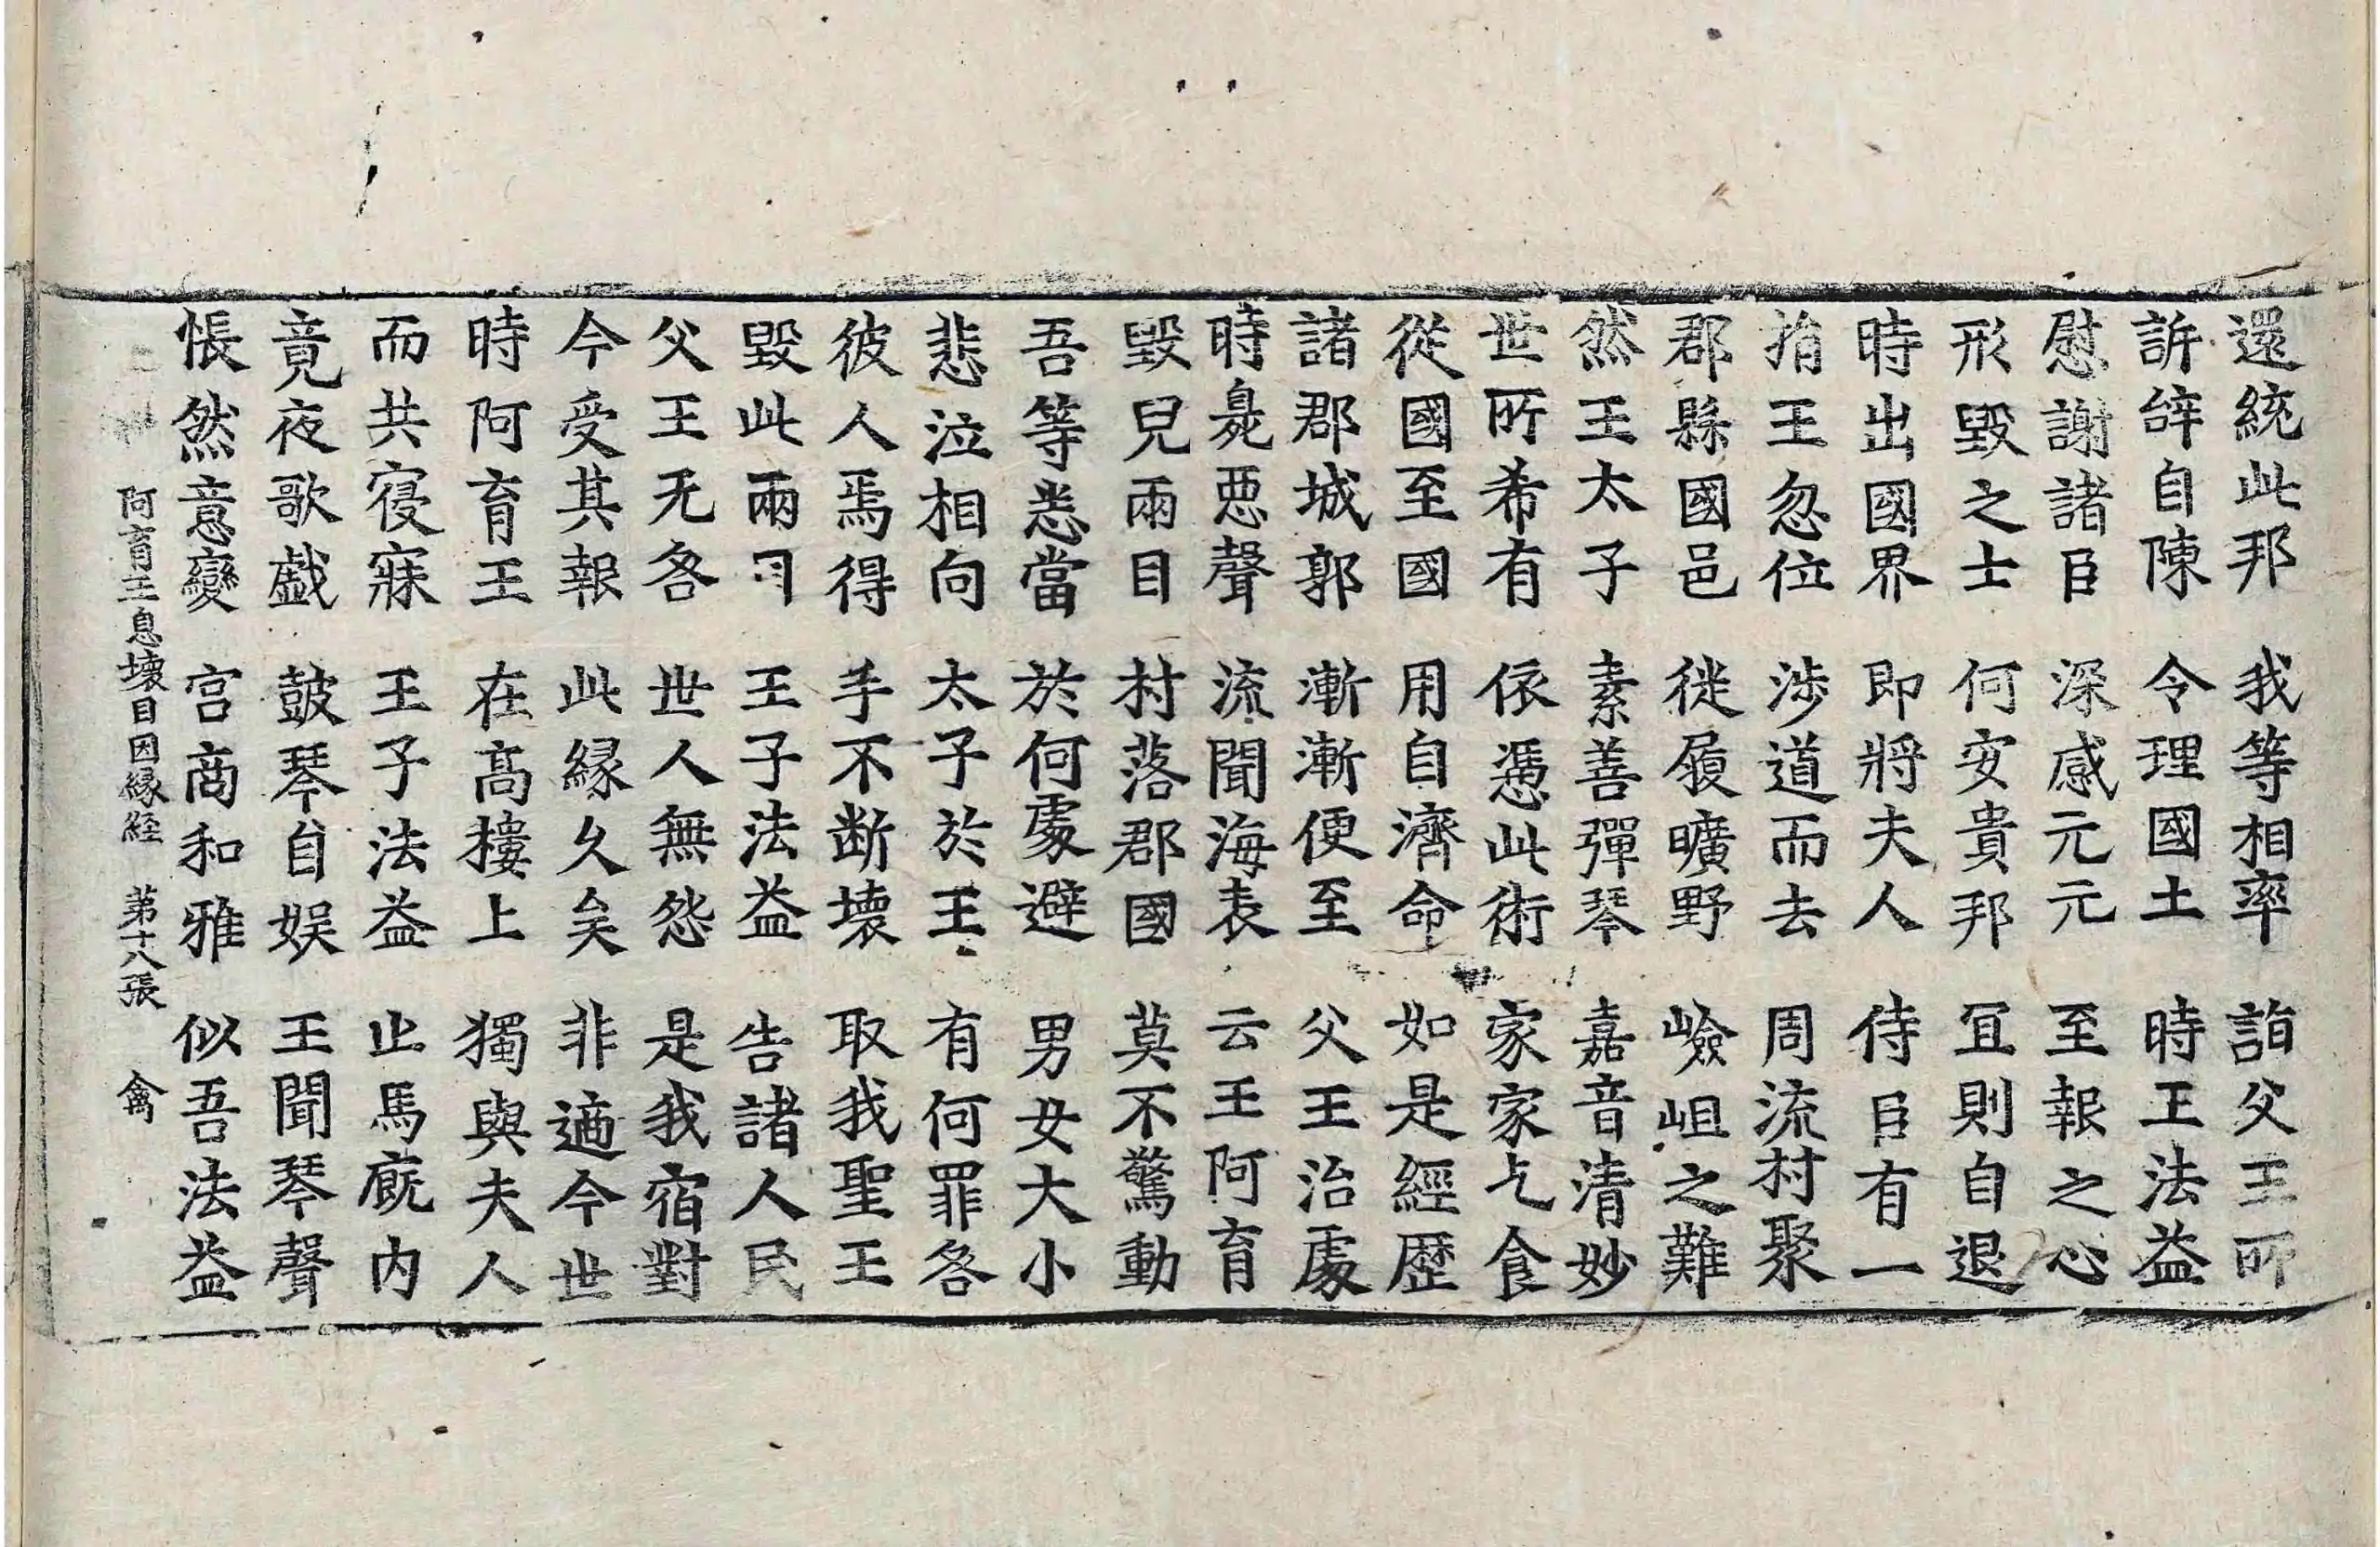 還統此邦 我等相率 詣父王所
訴辝自陳 令理國土 時王法益
慰謝諸臣 深感元元 至報之心
形毀之士 何安貴邦 冝則自退
時出國界 即將夫人 侍臣有一
捐王忽位 涉道而去 周流村聚
郡縣國邑 徙履曠野 嶮岨之難
然王太子 素善彈琴 嘉音清妙
世所希有 依憑此術 家家乞食
從國至國 用自濟命 如是經歷
諸郡城郭 漸漸便至 父王治處
時臰惡聲 流聞海表 云王阿育
毀兒兩目 村落郡國 莫不驚動
吾等悉當 於何處避 男女大小
悲泣相向 太子於王 有何罪咎
彼人焉得 手不断壞 取我聖王
毀此兩目 王子法益 告諸人民
父王无咎 世人無怨 是我宿對
今受其報 此緣久矣 非適今世
時阿育王 在高樓上 獨與夫人
而共寑寐 王子法益 止馬廐内
竟夜歌戯 鼓琴自娱 王聞琴聲
悵然意變 宫商和雅 似吾法益
阿育王息壞目因緣經 苐十八張 禽